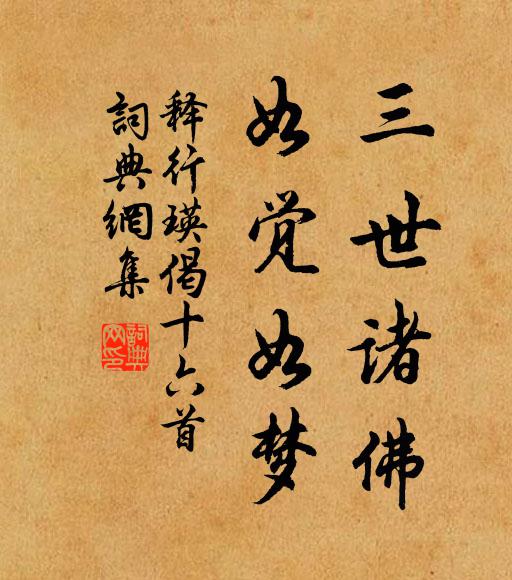 三世诸佛
如觉如梦
释行瑛偈十六首
詞典網集
詞典
网印